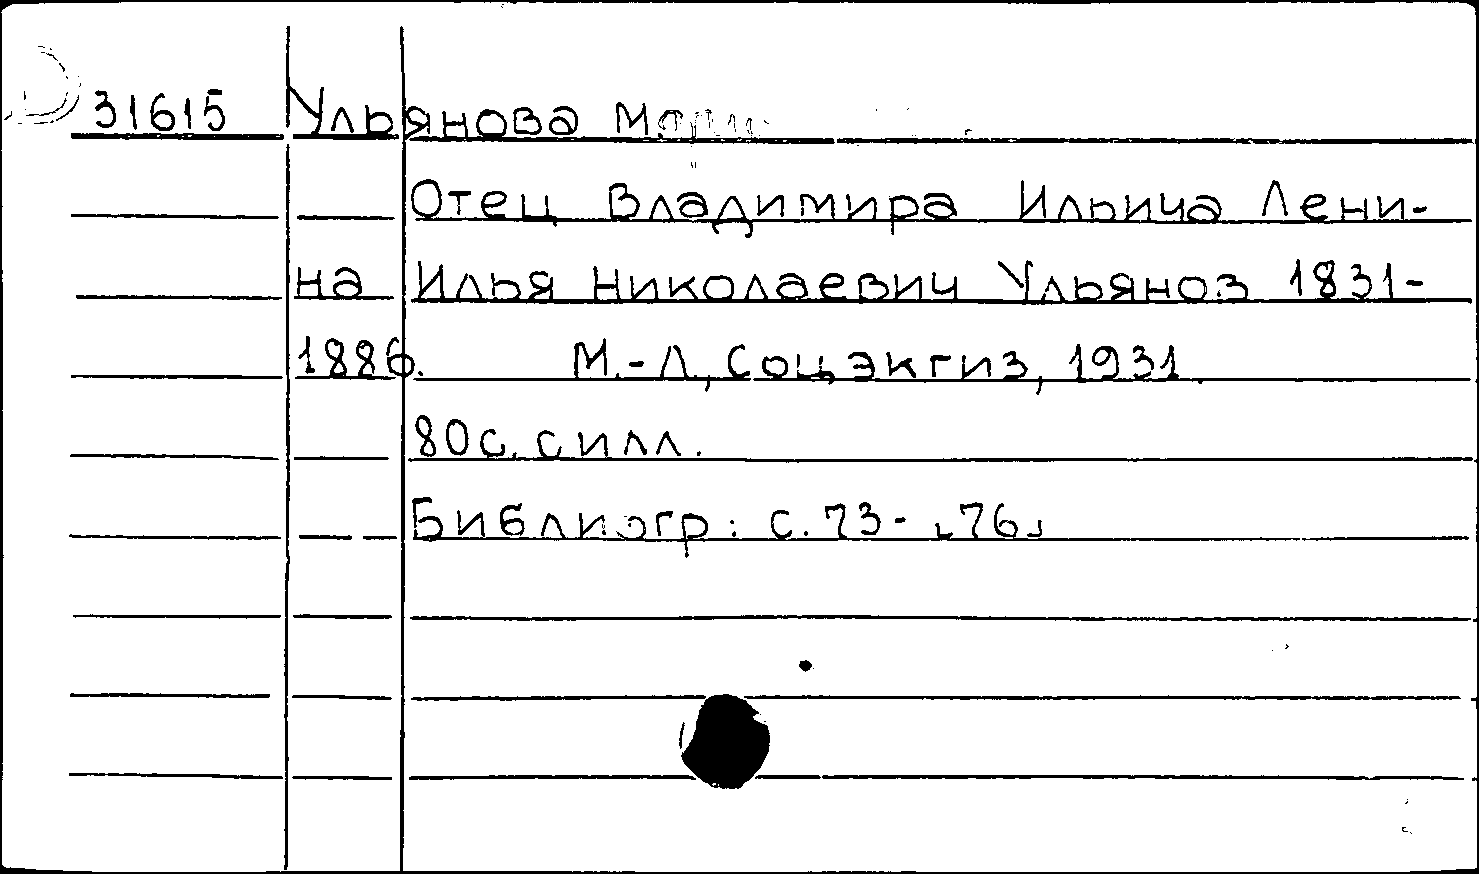 31615 Ульянова М.
Отец Владимира Ильича Лени-
на Илья Николаевич Ульянов 1831-
1886. М.-Л., Соцэкгиз, 1931
80с. с илл.
Библиогр: с. 73- [76]